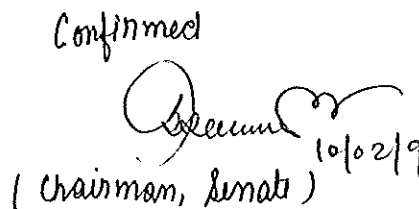 Confirmed
10/02/9
(Chairman, Senate)